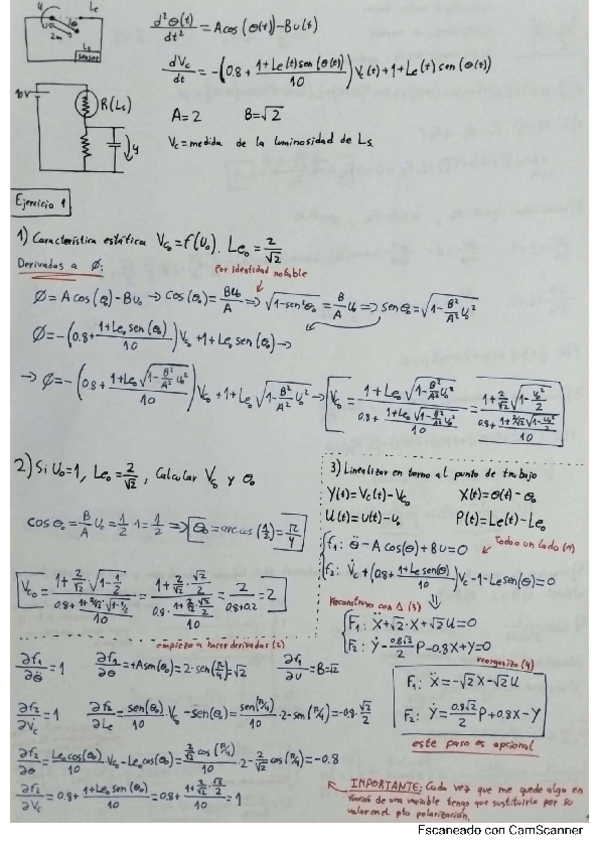 u Le
2m
Ls
sensor
d²θ(t)/dt² = A cos(θ(t)) - B u(t)
dVc/dt = -(0.8 + (1+Le(t) sen(θ(t)))/10) Vc(t) + 1 + Le(t) sen(θ(t))
A=2 B=√2
Vc = medida de la luminosidad de Ls.
10V R(Ls) y
Ejercicio 1
1) Característica estática Vc₀ = f(U₀). Le₀ = 2/√2
Derivadas a Ø:
Por identidad notable
Ø = A cos(θ₀) - Bu₀ → cos(θ₀) = Bu₀/A ⇒ √(1-sen²θ₀) = B/A u₀ ⇒ senθ₀ = √(1 - B²/A² u₀²)
Ø = -(0.8 + (1+Le₀ sen(θ₀))/10) Vc₀ + 1 + Le₀ sen(θ₀) →
→ Ø = -(0.8 + (1+Le₀ √(1 - B²/A² u₀²))/10) Vc₀ + 1 + Le₀ √(1 - B²/A² u₀²) → Vc₀ = (1 + Le₀ √(1 - B²/A² u₀²))/(0.8 + (1+Le₀ √(1 - B²/A² u₀²))/10) = (1 + 2/√2 √(1 - u₀²/2))/(0.8 + (1+2/√2 √(1-u₀²/2))/10)
2) Si U₀=1, Le₀ = 2/√2, Calcular Vc₀ y θ₀
Vc₀ = (1 + 2/√2 √(1-1/2))/(0.8 + (1+2/√2 √(1-1/2))/10) = (1 + 2/√2 · √2/2)/(0.8 + (1+2/√2 · √2/2)/10) = 2/(0.8+0.2) = 2
3) Linealizar en torno al punto de trabajo
Y(t) = Vc(t) - Vc₀ X(t) = θ(t) - θ₀
U(t) = u(t) - u₀ P(t) = Le(t) - Le₀
Todo a un lado (1)
f₁: θ̈ - A cos(θ) + Bu = 0
f₂: V̇c + (0.8 + (1+Le sen(θ))/10) Vc - 1 - Le sen(θ) = 0
reconstruimos con Δ (3)
F₁: Ẍ + √2·X + √2 U = 0
F₂: Ẏ - 0.8√2/2 P - 0.8X + Y = 0
reorganizo (4)
F₁: Ẍ = -√2 X - √2 U
F₂: Ẏ = 0.8√2/2 P + 0.8X - Y
este paso es opcional
empiezo a hacer derivadas (2)
∂f₁/∂θ̈ = 1 ∂f₁/∂θ = +A sen(θ₀) = 2·sen(π/4) = √2 ∂f₁/∂u = B = √2
∂f₂/∂V̇c = 1 ∂f₂/∂Le = sen(θ₀)/10 · Vc₀ - sen(θ₀) = sen(π/4)/10 · 2 - sen(π/4) = -0.8·√2/2
∂f₂/∂θ = Le₀cos(θ₀)/10 · Vc₀ - Le₀cos(θ₀) = 2/√2 cos(π/4)/10 · 2 - 2/√2 cos(π/4) = -0.8
∂f₂/∂Vc = 0.8 + (1+Le₀ sen(θ₀))/10 = 0.8 + (1 + 2/√2 · √2/2)/10 = 1
IMPORTANTE: Cada vez que me quede algo en
función de una variable tengo que sustituirla por su
valor en el pto polarización.
Escaneado con CamScanner